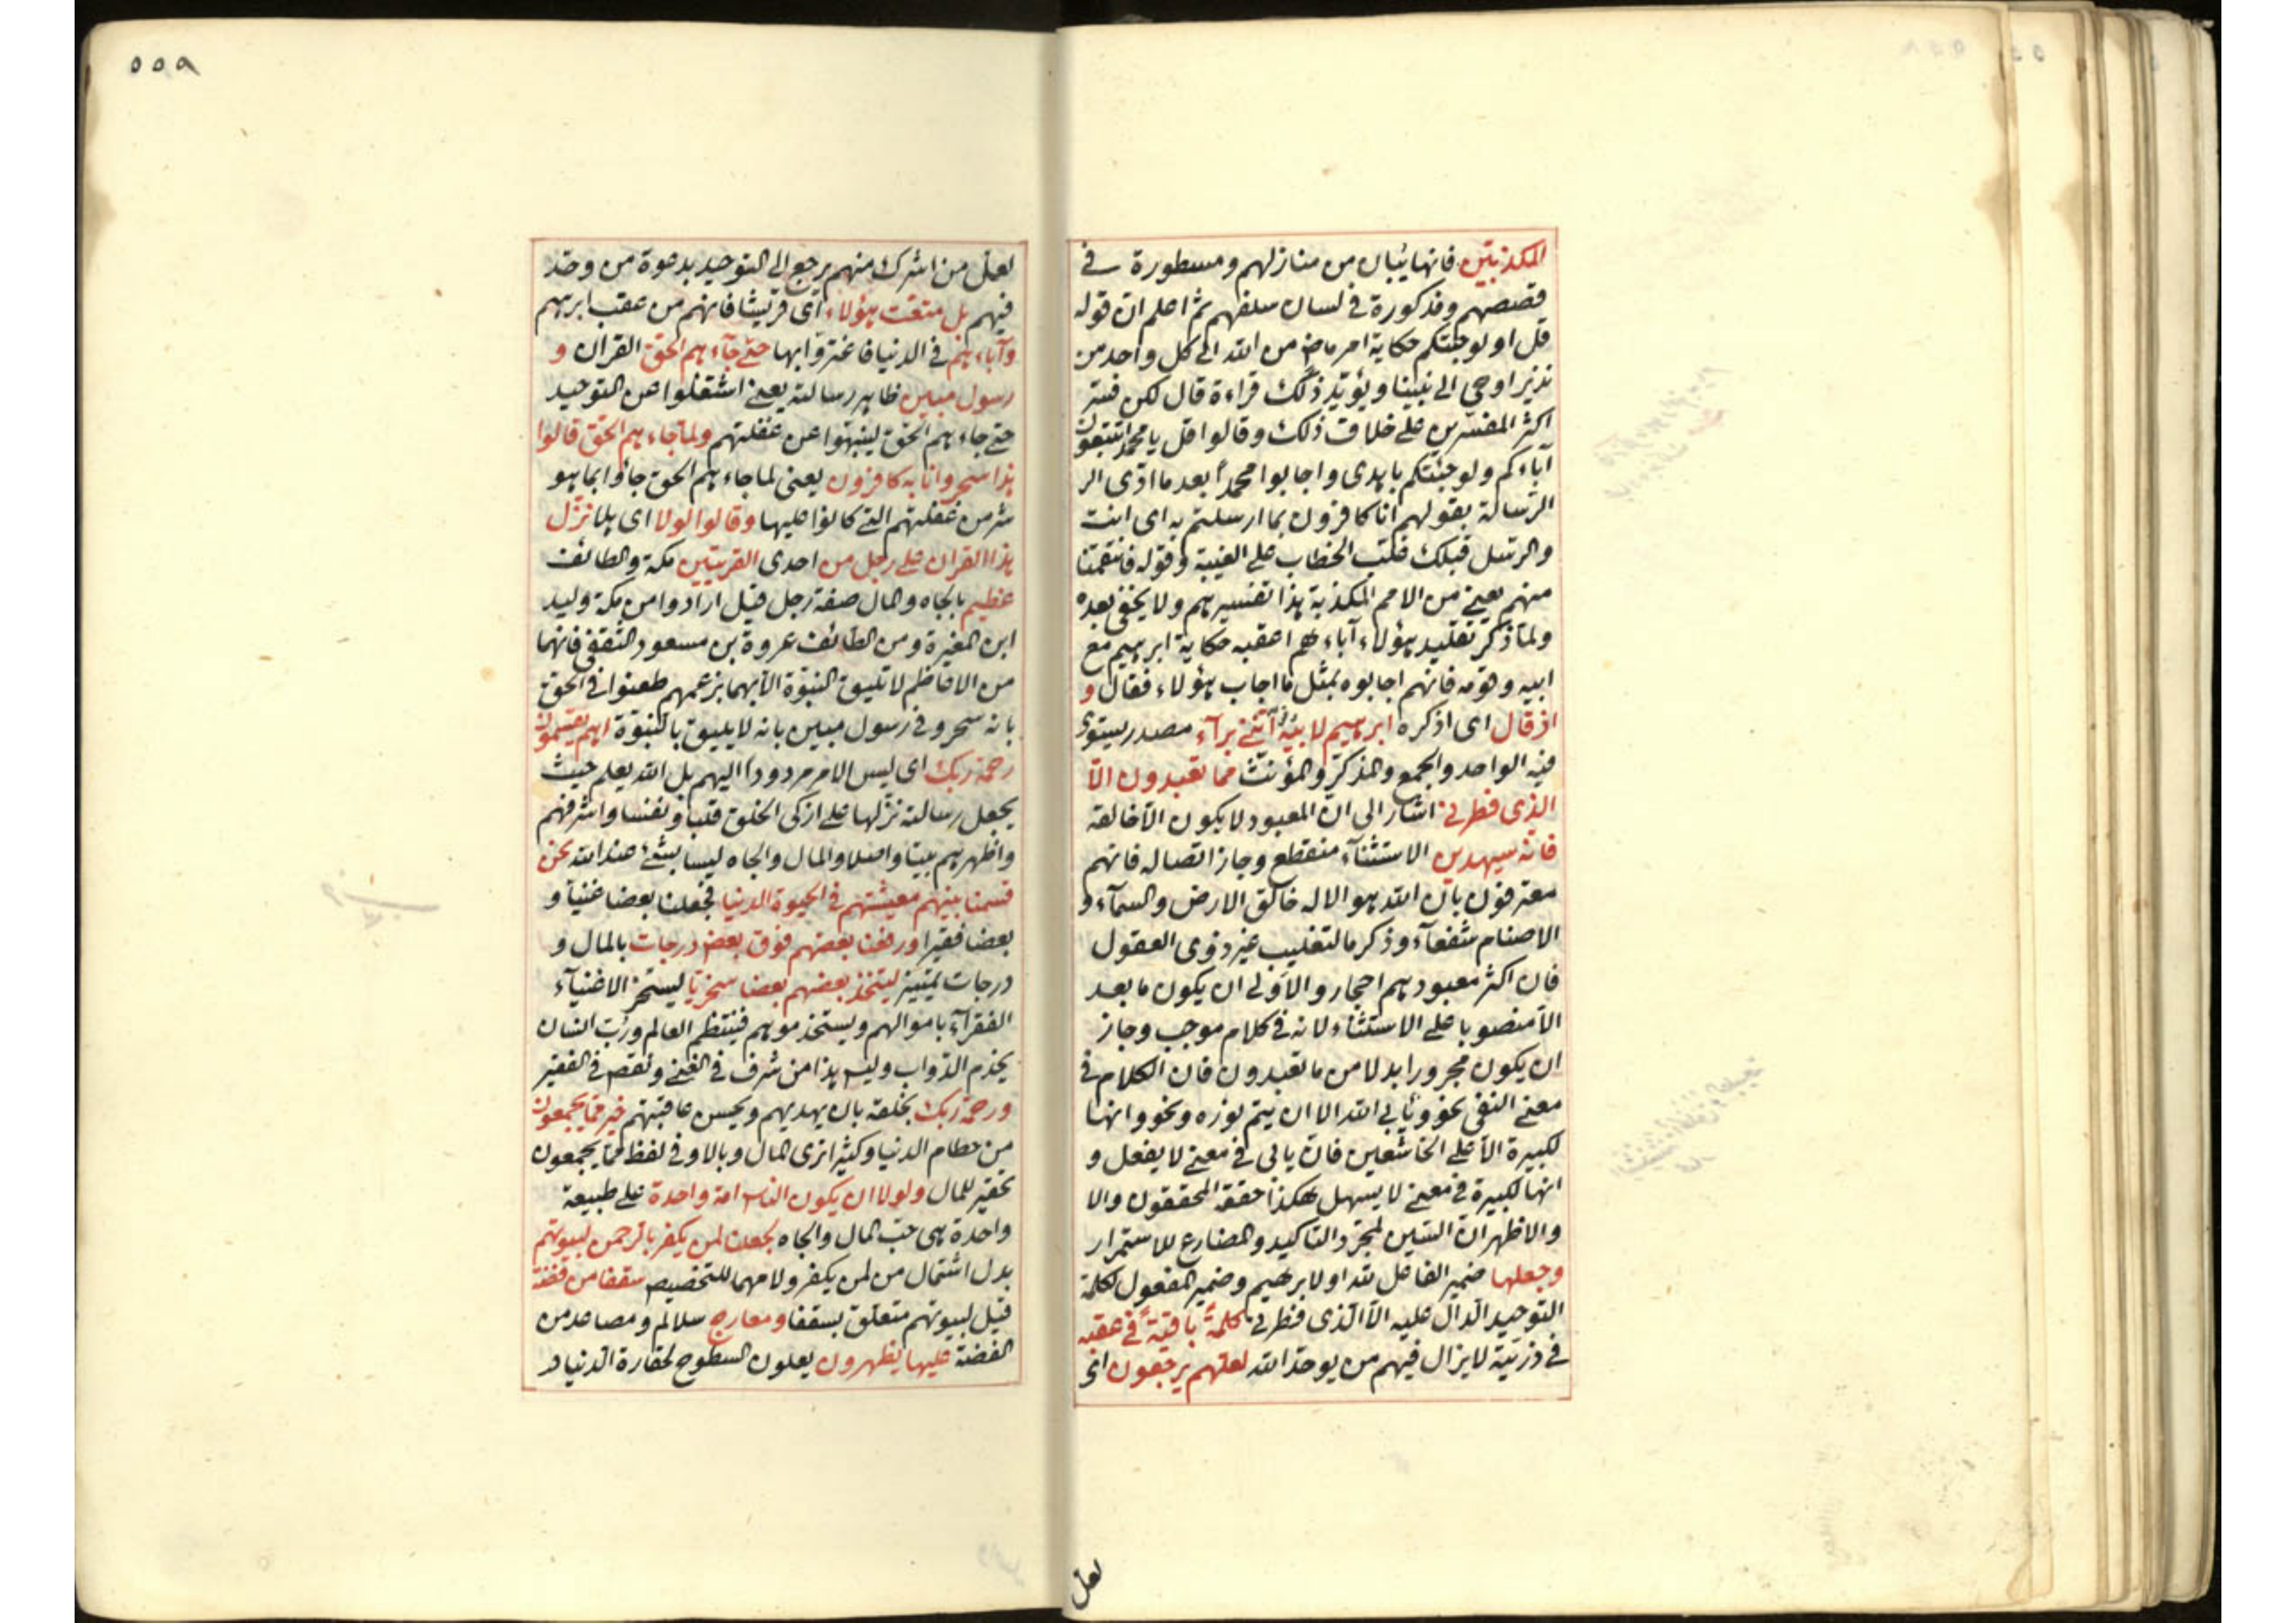 المكذبين فانها يتبان من منازلهم ومسطورة في
قصصهم ومذكورة في لسان سلفهم ثم اعلم ان قوله
قل اولو جئتكم حكاية امر ماض من الله الى كل واحد من
نذير اوحي الى نبينا ويؤيد ذلك قراءة قال لكن فسر
اكثر المفسرين على خلاف ذلك وقالوا قل يا محمد اتتبعون
آباءكم ولو جئتكم باهدى واجابوا محمدا بعد ما ادى الر
الرسالة بقولهم انا كافرون بما ارسلتم به اى انت
والرسل قبلك فغلب الخطاب على الغيبة وقوله فانتقمنا
منهم يعني من الامم المكذبة هذا تفسيرهم ولا يخفى بعده
ولما ذكر تقليد هؤلاء آباءهم اعقبه حكاية ابرهيم مع
ابيه وقومه فانهم اجابوه بمثل ما اجاب هؤلاء فقال و
اذ قال اى اذكره ابرهيم لابيه انني برآء مصدر يستوى
فيه الواحد والجمع والمذكر والمؤنث مما تعبدون الا
الذى فطرنى اشار الى ان المعبود لا يكون الا خالقه
فانه سيهدين الاستثناء منقطع وجاز اتصاله فانهم
معترفون بان الله هو الاله خالق الارض والسمآء و
الاصنام شفعآء وذكر ما لتغليب غير ذوى العقول
فان اكثر معبودهم احجار والاولى ان يكون ما بعد
الا منصوبا على الاستثناء لانه في كلام موجب وجاز
ان يكون مجرورا بدلا من ما تعبدون فان الكلام في
معنى النفى نحو ويأبى الله الا ان يتم نوره ونحو وانها
لكبيرة الا على الخاشعين فان يابى في معنى لا يفعل و
انها لكبيرة في معنى لا يسهل هكذا حققه المحققون والا
والاظهر ان السين لمجرد التاكيد والمضارع للاستمرار
وجعلها ضمير الفاعل لله او لابرهيم وضمير المفعول لكلمة
التوحيد الدال عليه الا الذى فطرنى كلمة باقية في عقبه
في ذريته لا يزال فيهم من يوحد الله لعلهم يرجعون اى
لعل
٥٥٨
لعل من اشرك منهم يرجع الى التوحيد بدعوة من وحد
فيهم بل متعت هؤلاء اى قريشا فانهم من عقب ابرهيم
وآباءهم في الدنيا فاغتروا بها حتى جآءهم الحق القران و
رسول مبين ظاهر رسالته يعنى اشتغلوا عن التوحيد
حتى جاءهم الحق لينبهوا عن غفلتهم ولما جاءهم الحق قالوا
هذا سحر وانا به كافرون يعنى لما جاءهم الحق جاؤا بما هو
شر من غفلتهم التى كانوا عليها وقالوا لولا اى هلا نزل
هذا القران على رجل من احدى القريتين مكة والطائف
عظيم بالجاه والمال صفة رجل قيل ارادوا من مكة وليد
ابن المغيرة ومن الطائف عروة بن مسعود الثقفى فانهما
من الاعاظم لا تليق النبوة الا بهما بزعمهم طعنوا في الحق
بانه سحر وفي رسول مبين بانه لا يليق بالنبوة اهم يقسمون
رحمة ربك اى ليس الامر مردودا اليهم بل الله يعلم حيث
يجعل رسالته نزلها على ازكى الخلق قلبا ونفسا واشرفهم
واظهرهم بيتا واصلا والمال والجاه ليسا بشئ عند الله نحن
قسمنا بينهم معيشتهم في الحيوة الدنيا فجعلنا بعضا غنيا و
بعضا فقيرا ورفعنا بعضهم فوق بعض درجات بالمال و
درجات تمييز ليتخذ بعضهم بعضا سخريا ليسخر الاغنيآء
الفقرآء باموالهم ويستخدموهم فينتظم العالم ورب انسان
يخدم الدواب وليس هذا من شرف في الغنى ونقص في الفقير
ورحمة ربك بخلقه بان يهديهم ويحسن عاقبتهم خير مما يجمعون
من حطام الدنيا وكثيرا نرى المال وبالا وفي لفظ مما يجمعون
تحقير للمال ولولا ان يكون الناس امة واحدة على طبيعة
واحدة هى حب المال والجاه لجعلنا لمن يكفر بالرحمن لبيوتهم
بدل اشتمال من لمن يكفر ولامهما للتخصيص سقفا من فضة
قيل لبيوتهم متعلق بسقفا ومعارج سلالم ومصاعد من
الفضة عليها يظهرون يعلون السطوح لحقارة الدنيا و